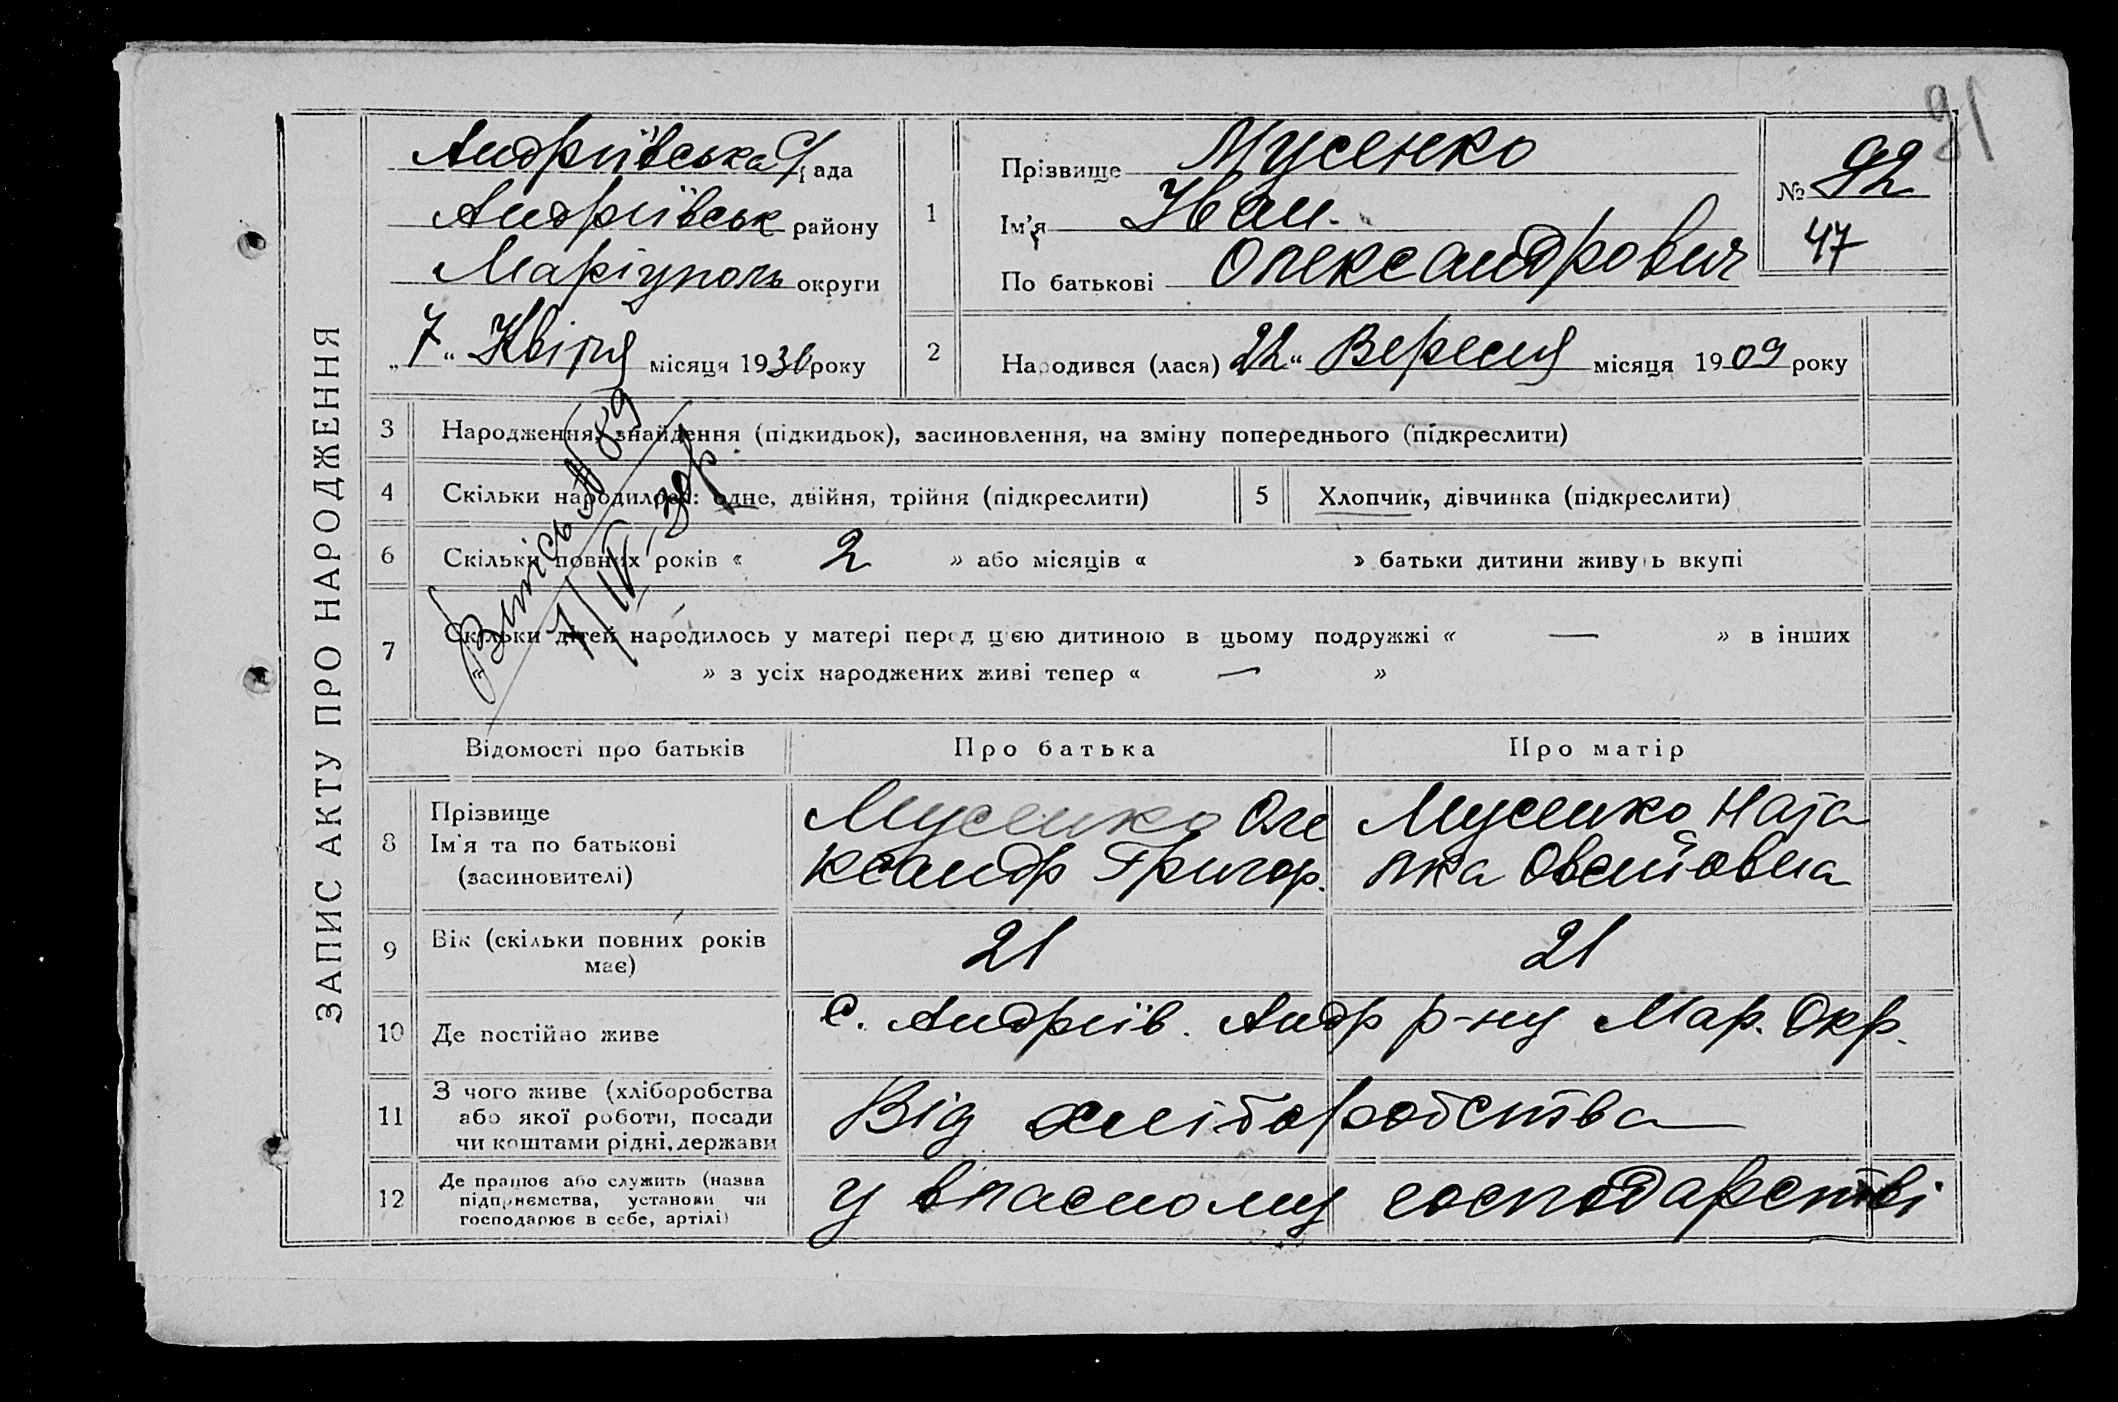 91
ЗАПИС АКТУ ПРО НАРОДЖЕННЯ
Андріївська С/рада
Андріївськ району
Маріуполь округи
„7“ Квітня місяця 1930 року
1
Прізвище Мусенко
Ім'я Іван.
По батькові Олександрович
№ 92
47
2 Народився (лася) 22“ Вересня місяця 1909 року
3 Народження, знайдення (підкидьок), засиновлення, на зміну попереднього (підкреслити)
4 Скільки народилось: одне, двійня, трійня (підкреслити)
5 Хлопчик, дівчинка (підкреслити)
6 Скільки повних років « 2 » або місяців « » батьки дитини живуть вкупі
7 Скільки дітей народилось у матері перед цією дитиною в цьому подружжі « — » в інших
« » з усіх народжених живі тепер « — »
Випісь № 89
7/IV-30р.
Відомості про батьків
Про батька
Про матір
8
Прізвище
Ім'я та по батькові
(засиновителі)
Мусенко Оле
ксандр Григор.
Мусенко Ната
лка Овсіївовна
9 Вік (скільки повних років
має)
21
21
10 Де постійно живе
с. Андріїв. Андр р-ну Мар. Окр.
11
З чого живе (хліборобства
або якої роботи, посади
чи коштами рідні, держави
Від хліборобства
12
Де працює або служить (назва
підприємства, установи чи
господарює в себе, артілі)
у власному господарстві